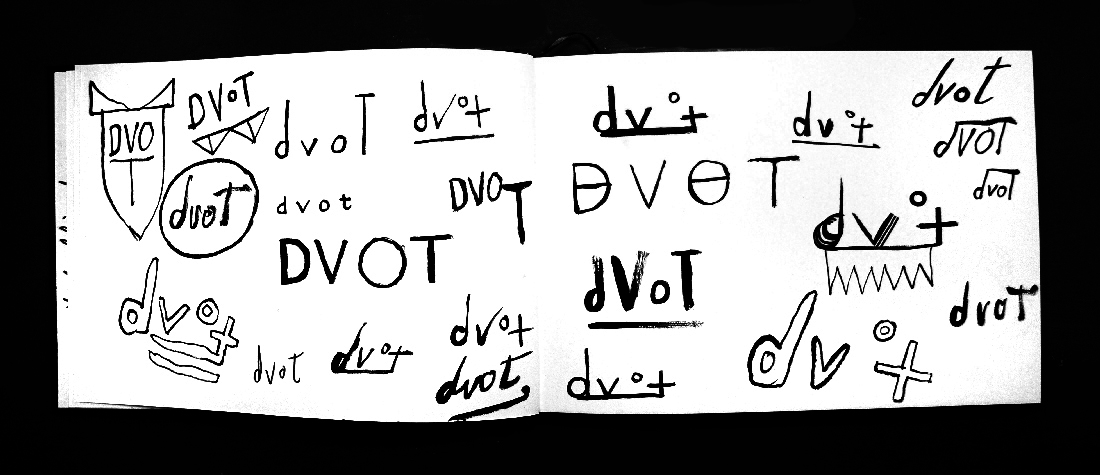 DVO
T
DVoT
dvoT
dvo+
dvoT
dvot
DVOT
DVOT
dvo+
dvot
dvo+
dvo+
dvot
dvo+
DVOT
dVoT
dvo+
dvo+
dvot
dVOT
dvoT
dvo+
dvoT
dvo+